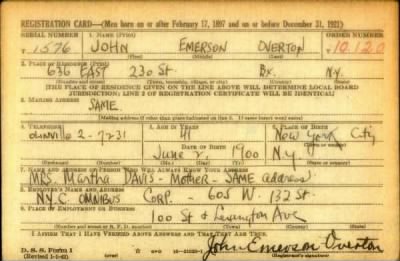 REGISTRATION CARD—(Men born on or after February 17, 1897 and on or before December 31, 1921)
SERIAL NUMBER 1. NAME (Print) ORDER NUMBER
1576 JOHN EMERSON OVERTON 10,120
(First) (Middle) (Last)
2. PLACE OF RESIDENCE (Print)
636 EAST 230 St. Bx. N.Y.
(Number and street) (Town, township, village, or city) (County) (State)
[THE PLACE OF RESIDENCE GIVEN ON THE LINE ABOVE WILL DETERMINE LOCAL BOARD
JURISDICTION; LINE 2 OF REGISTRATION CERTIFICATE WILL BE IDENTICAL]
3. MAILING ADDRESS
SAME
[Mailing address if other than place indicated on line 2. If same insert word same]
4. TELEPHONE 5. AGE IN YEARS 6. PLACE OF BIRTH
2-7231 41 New York City
DATE OF BIRTH (Town or county)
June 2, 1900 N.Y.
(Mo.) (Day) (Yr.) (State or country)
7. NAME AND ADDRESS OF PERSON WHO WILL ALWAYS KNOW YOUR ADDRESS
MRS. Martha DAVIS - Mother - SAME address
8. EMPLOYER'S NAME AND ADDRESS
N.Y.C. OMNIBUS CORP. - 605 W. 132 St
9. PLACE OF EMPLOYMENT OR BUSINESS
100 St & Lexington Ave
(Number and street or R. F. D. number) (Town) (County) (State)
I AFFIRM THAT I HAVE VERIFIED ABOVE ANSWERS AND THAT THEY ARE TRUE.
D. S. S. Form 1
(Revised 1-1-42) (over)
John Emerson Overton